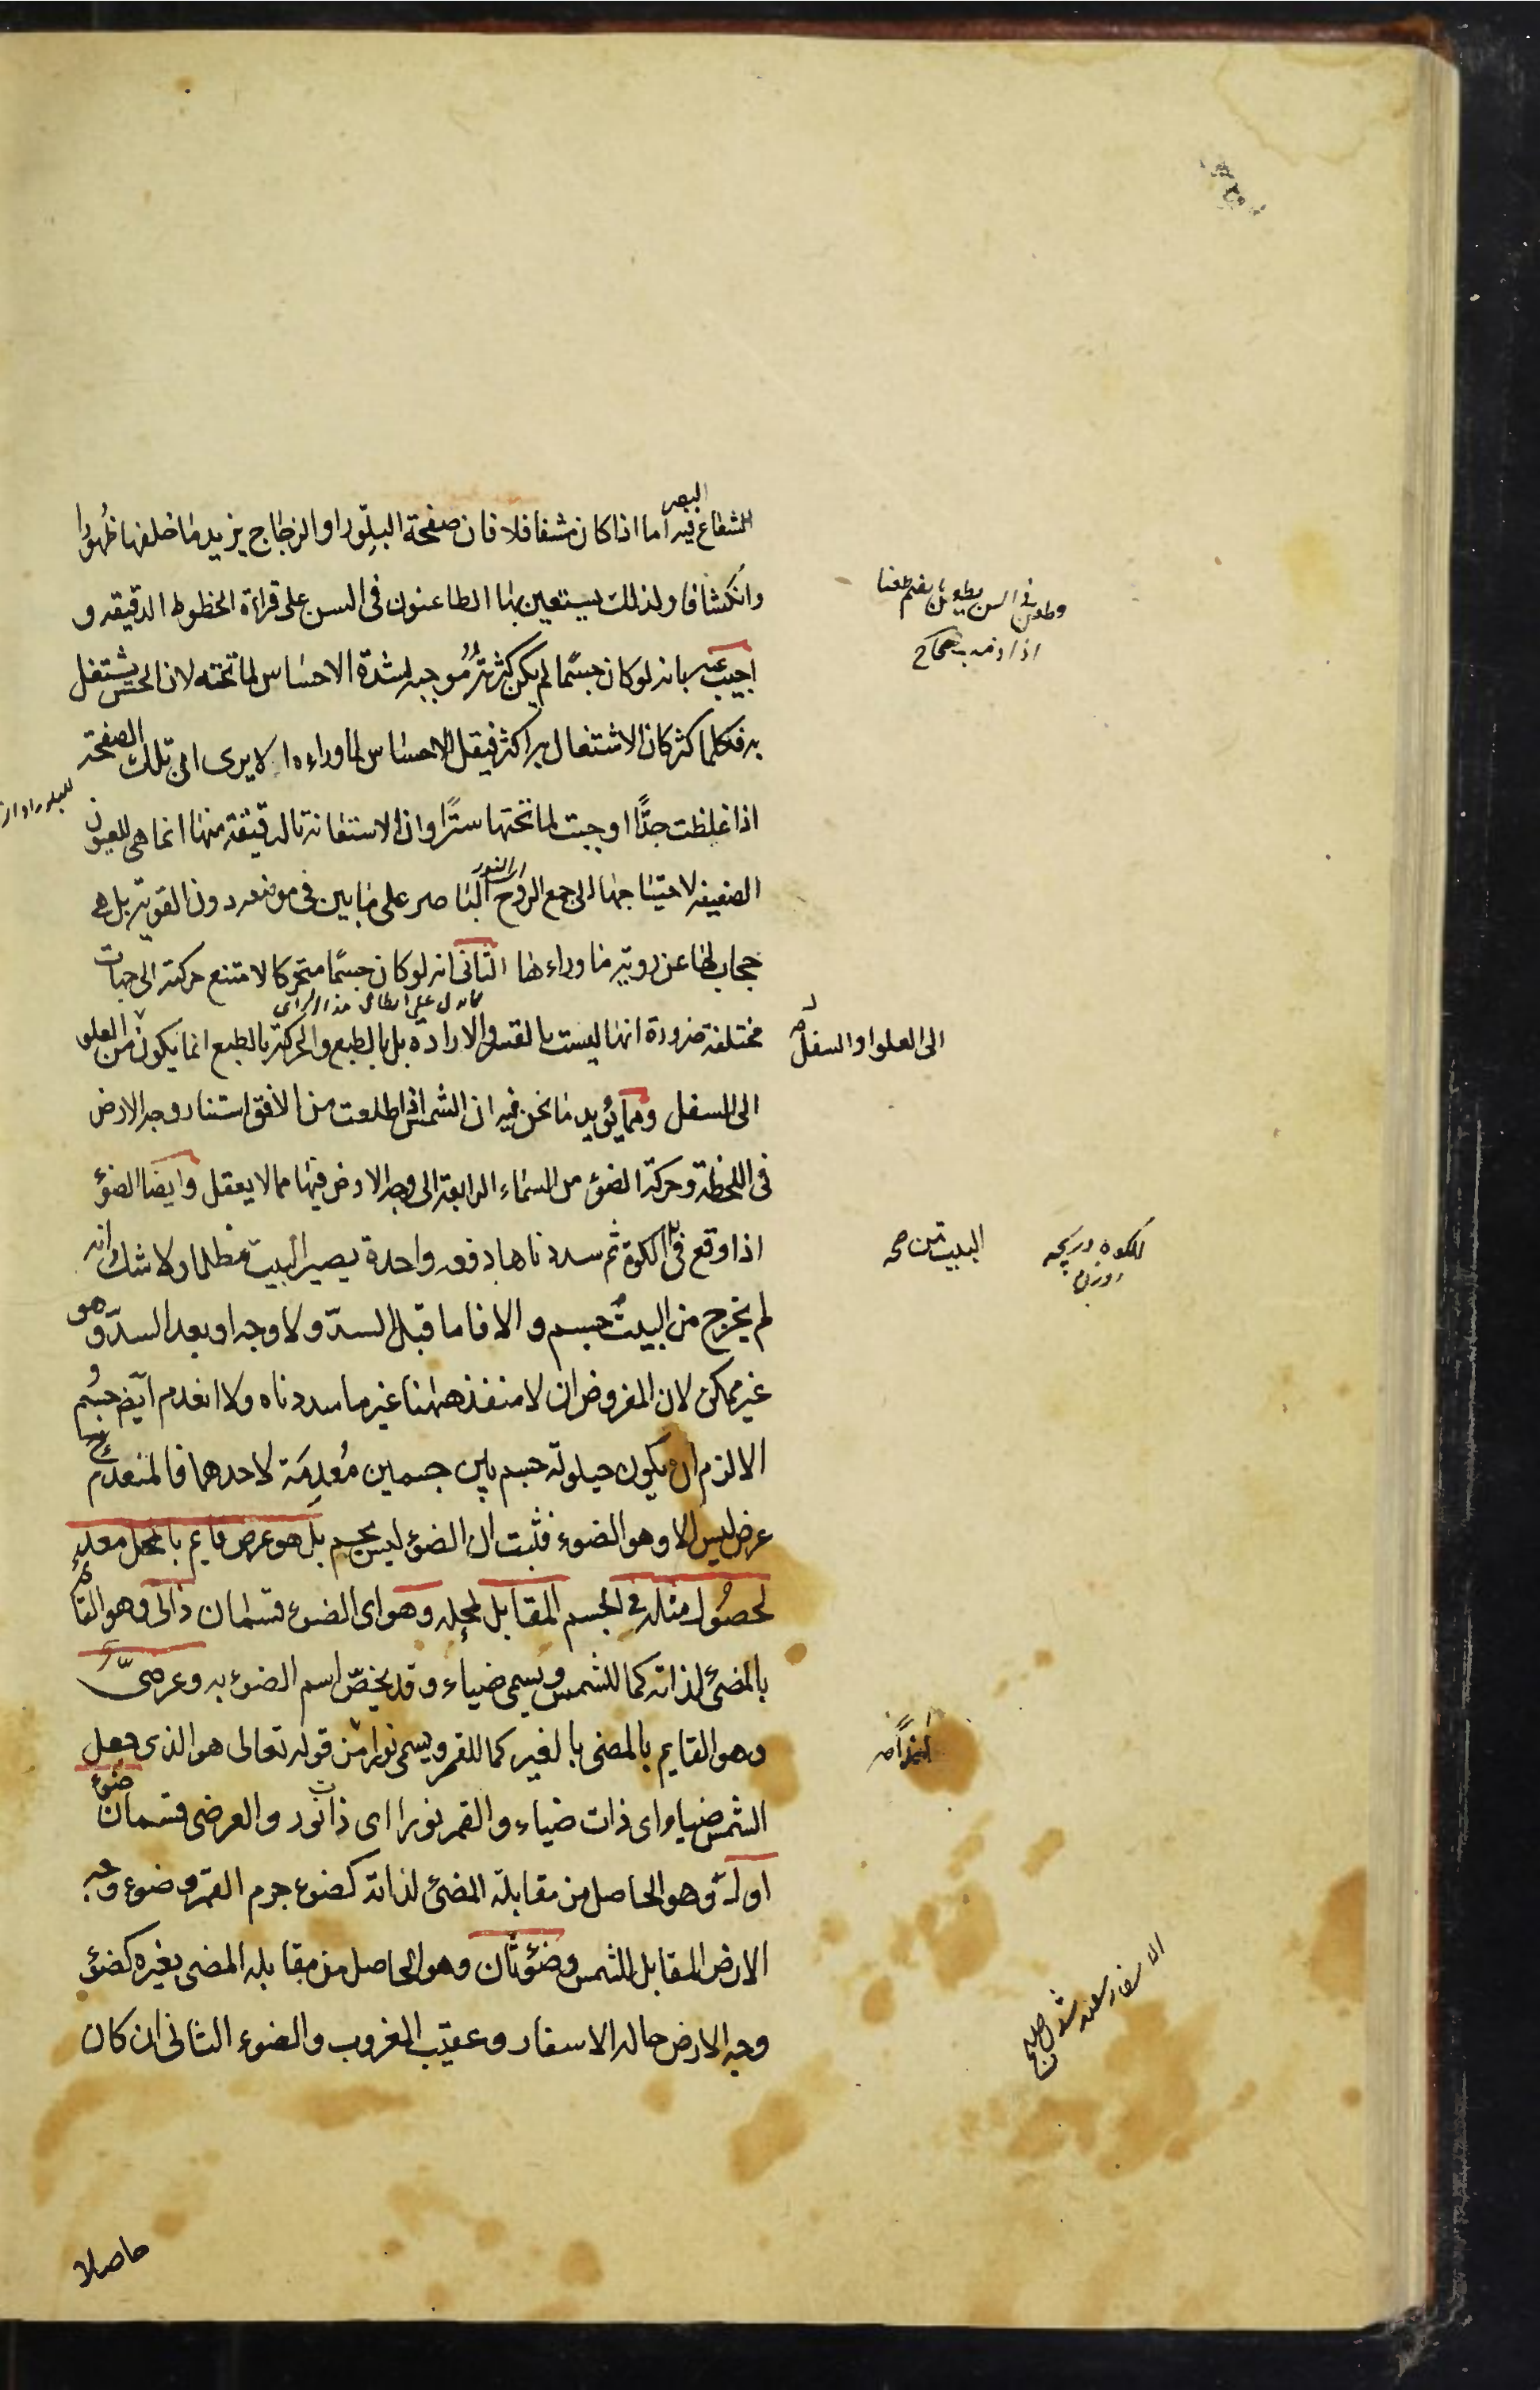 للشعاع فيه اما اذا كان مشفا فلا فان صفحة البلّور او الزجاج يزيد ما خلفها ظُهورًا
البصر
وانكشافا ولذلك يستعين بها الطاعنون فى السن على قراءة الخطوط الدقيقه و
اجيب عنه بانه لو كان جسمًا لم يكن كثرتُهُ مُوجبه لشدة الاحساس لما تحته لان الحس يشتغل
به فكلما كثر كان الاشتغال به اكثر فيقل الاحساس لما وراءه الا يرى ان تلك الصفحة
اذا غلظت جدًّا اوجبت لما تحتها سترًا وان الاستعانة بالدقيقة منها انما هى للعيون
الضعيفه لاحتياجها الى جمع الروح الباصر على ما بين فى موضعه دون القوية بل هى
اى النور
حجاب لها عن روية ما وراءها الثانى انه لو كان جسمًا متحركا لامتنع حركته الى جهات
مختلفة ضرورة انها ليست بالقسر والارادة بل بالطبع والحركة بالطبع انما يكون من العلو
الى السفل ومما يؤيد ما نحن فيه ان الشمس اذا طلعت من الافق استنار وجه الارض
فى اللحظة وحركة الضوء من السماء الرابعة الى وجه الارض فيها مما لا يعقل وايضا الضوء
اذا وقع فى الكوة ثم سددناها دفعه واحدة يصير البيت مظلما ولا شك انه
لم يخرج من البيت جسم والا فاما قبل السدّ ولا وجه او بعد السدّ وهو
غير ممكن لان المفروض ان لا منفذ ههنا غير ما سددناه ولا انعدم ايضا جسم
الا لزم ان يكون حيلولة جسم بين جسمين مُعدِمَة لاحدهما فالمنعدم
عرض ليس الا وهو الضوء فثبت ان الضوء ليس بجسم بل هو عرض قايم بالمحل معد
لحصُول مثله فى الجسم المقابل لمحله وهو اى الضوء قسمان ذاتى وهو القائم
بالمضئ لذاته كما للشمس ويسمى ضياء وقد يخصّ اسم الضوء به وعرضىّ
وهو القايم بالمضئ بالغير كما للقمر ويسمى نورا من قوله تعالى هو الذى جعل
الشمس ضياء اى ذات ضياء والقمر نورا اى ذا نور والعرضى قسمان ضوء
اول وهو الحاصل من مقابلة المضئ لذاته كضوء جرم القمر وضوء وجه
الارض المقابل للشمس وضوء ثان وهو الحاصل من مقابله المضئ بغيره كضوء
وجه الارض حاله الاسفار وعقيب الغروب والضوء الثانى ان كان
حاصلا
وطعن فى السن يطعن بضم طعنا
الى العلو او السفل
البيت من صح
الكوه دريچه
روزن
ايضاً صح